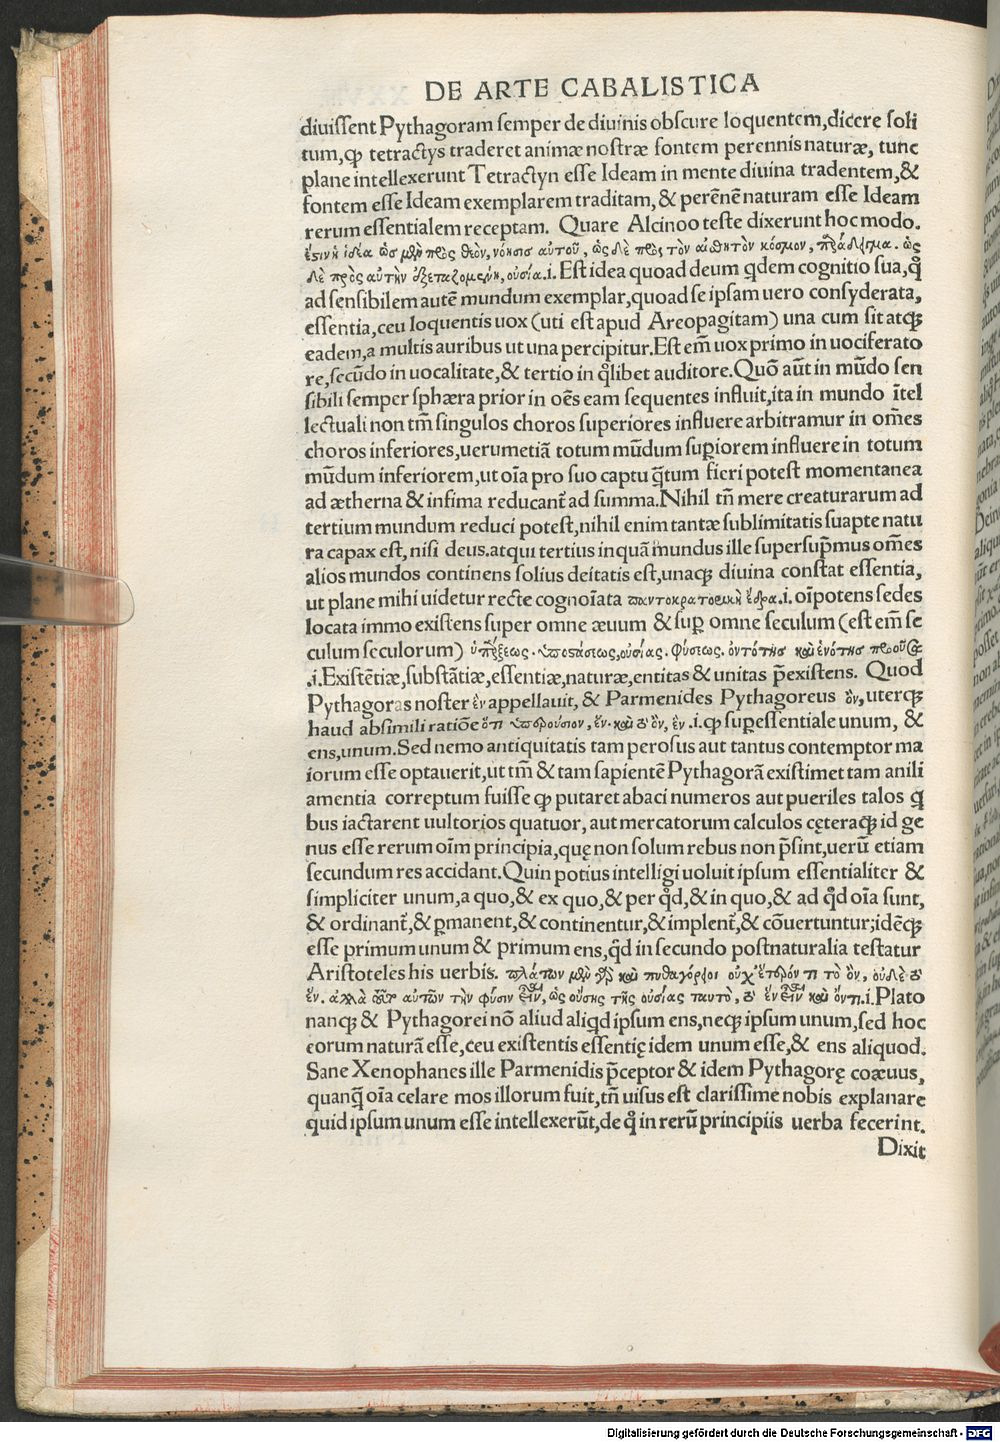 DE ARTE CABALISTICA
diuiſſent Pythagoram ſemper de diuinis obſcure loquentem, dicere ſoli
tum, ꝙ tetractys traderet animæ noſtræ fontem perennis naturæ, tunc
plane intellexerunt Tetractyn eſſe Ideam in mente diuina tradentem, &
fontem eſſe Ideam exemplarem traditam, & perēnē naturam eſſe Ideam
rerum eſſentialem receptam. Quare Alcinoo teſte dixerunt hoc modo.
ἔστιν ἡ ἰδέα ὡσ μὲν πρὸς θεὸν, νόησισ αὐτοῦ, ὡς δὲ πρὸς τὸν αἰσθητὸν κόσμον, παράδειγμα. ὡς
δὲ πρὸς αὐτὴν ἐξεταζομένη, οὐσία .i. Eſt idea quoad deum q̇dem cognitio ſua, q̄
ad ſenſibilem autē mundum exemplar, quoad ſe ipſam uero conſyderata,
eſſentia, ceu loquentis uox (uti eſt apud Areopagitam) una cum ſit atqꝫ
eadem, a multis auribus ut una percipitur. Eſt em̄ uox primo in uociferato
re, ſecūdo in uocalitate, & tertio in q̇libet auditore. Quō aūt in mūdo ſen
ſibili ſemper ſphæra prior in oēs eam ſequentes influit, ita in mundo ītel
lectuali non tm̄ ſingulos choros ſuperiores influere arbitramur in om̄es
choros inferiores, uerumetiā totum mūdum ſuꝑiorem influere in totum
mūdum inferiorem, ut oīa pro ſuo captu q̄tum fieri poteſt momentanea
ad ætherna & infima reducant̄ ad ſumma. Nihil tn̄ mere creaturarum ad
tertium mundum reduci poteſt, nihil enim tantæ ſublimitatis ſuapte natu
ra capax eſt, niſi deus. atqui tertius inquā mundus ille ſuperſup̄mus om̄es
alios mundos continens ſolius deitatis eſt, unaqꝫ diuina conſtat eſſentia,
ut plane mihi uidetur recte cognoīata παντοκρατορικὴ ἕδρα .i. oīpotens ſedes
locata immo exiſtens ſuper omne æuum & ſuꝑ omne ſeculum (eſt em̄ ſe
culum ſeculorum) ὑπάρξεως. ὑποστάσεως, οὐσίας. φύσεως. ὀντότησ καὶ ἑνότησ προοῦσα
.i. Exiſtētiæ, ſubſtātiæ, eſſentiæ, naturæ, entitas & unitas p̄exiſtens. Quod
Pythagoras noſter ἓν appellauit, & Parmenides Pythagoreus ὂν, uterqꝫ
haud abſimili ratiōe ὅτι ὑπερούσιον, ἕν. καὶ τὸ ὂν, ἕν .i. ꝙ ſuꝑeſſentiale unum, &
ens, unum. Sed nemo antiquitatis tam peroſus aut tantus contemptor ma
iorum eſſe optauerit, ut tm̄ & tam ſapientē Pythagorā exiſtimet tam anili
amentia correptum fuiſſe ꝙ putaret abaci numeros aut pueriles talos q̇
bus iactarent uultorios quatuor, aut mercatorum calculos cęteraqꝫ id ge
nus eſſe rerum oīm principia, quę non ſolum rebus non p̄ſint, uerū etiam
ſecundum res accidant. Quin potius intelligi uoluit ipſum eſſentialiter &
ſimpliciter unum, a quo, & ex quo, & per q̇d, & in quo, & ad q̇d oīa ſunt,
& ordinant̄, & ꝑmanent, & continentur, & implent̄, & cōuertuntur; idēqꝫ
eſſe primum unum & primum ens, q̇d in ſecundo poſtnaturalia teſtatur
Ariſtoteles his uerbis. πλάτων μὲν γὰρ καὶ πυθαγόρειοι οὐχ' ἕτερόν τι τὸ ὂν, οὐδὲ τὸ
ἕν. ἀλλὰ τοῦτο αὐτῶν τὴν φύσιν εἶναι, ὡς οὔσης τῆς οὐσίας ταυτὸ, τὸ ἓν εἶναι καὶ ὄν τι .i. Plato
nanqꝫ & Pythagorei nō aliud aliq̇d ipſum ens, neqꝫ ipſum unum, ſed hoc
eorum naturā eſſe, ceu exiſtentis eſſentię idem unum eſſe, & ens aliquod.
Sane Xenophanes ille Parmenidis p̄ceptor & idem Pythagorę coæuus,
quanq̄ oīa celare mos illorum fuit, tn̄ uiſus eſt clariſſime nobis explanare
quid ipſum unum eſſe intellexerūt, de q̇ in rerū principiis uerba fecerint.
Dixit
Digitalisierung gefördert durch die Deutsche Forschungsgemeinschaft - DFG